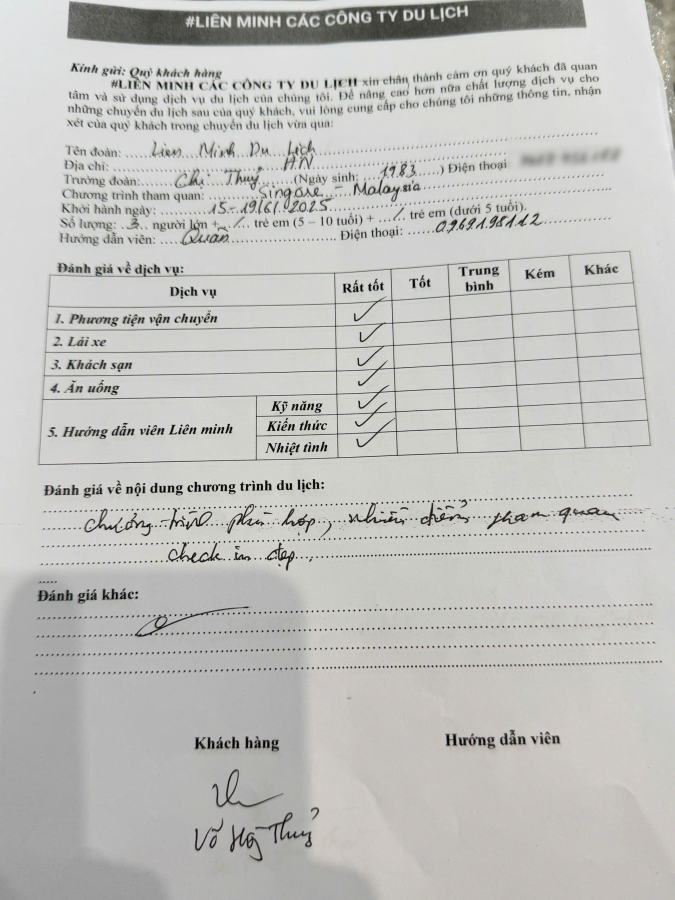 #LIÊN MINH CÁC CÔNG TY DU LỊCH
Kính gửi: Quý khách hàng
#LIÊN MINH CÁC CÔNG TY DU LỊCH xin chân thành cảm ơn quý khách đã quan
tâm và sử dụng dịch vụ du lịch của chúng tôi. Để nâng cao hơn nữa chất lượng dịch vụ cho
những chuyến du lịch sau của quý khách, vui lòng cung cấp cho chúng tôi những thông tin, nhận
xét của quý khách trong chuyến du lịch vừa qua:
Tên đoàn: Liên Minh Du Lịch
Địa chỉ: HN
Trưởng đoàn: Chị Thuỷ (Ngày sinh: 1983) Điện thoại
Chương trình tham quan: Singore - Malaysia
Khởi hành ngày: 15-19/6/2025
Số lượng: 3 người lớn + / trẻ em (5 – 10 tuổi) + / trẻ em (dưới 5 tuổi).
Hướng dẫn viên: Quân Điện thoại: 0969198112
Đánh giá về dịch vụ:
Dịch vụ Rất tốt Tốt Trung bình Kém Khác
1. Phương tiện vận chuyển ✓
2. Lái xe ✓
3. Khách sạn ✓
4. Ăn uống ✓
5. Hướng dẫn viên Liên minh Kỹ năng ✓
Kiến thức ✓
Nhiệt tình ✓
Đánh giá về nội dung chương trình du lịch:
chương trình phù hợp, nhiều điểm tham quan
check in đẹp.
Đánh giá khác:
Khách hàng Hướng dẫn viên
Võ Thuỷ